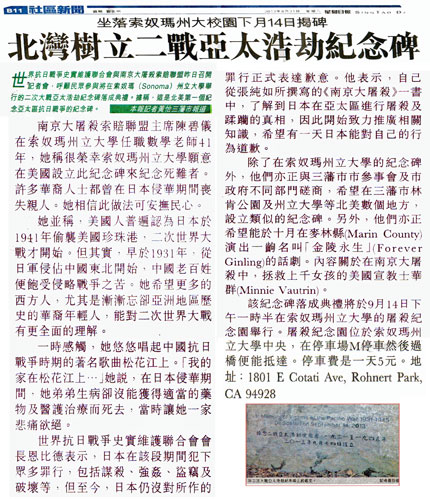 B11 社區新聞
坐落索奴瑪州大校園下月14日揭碑
北灣樹立二戰亞太浩劫紀念碑
世界抗日戰爭史實維護聯合會與南京大屠殺索賠聯盟昨日召開
記者會,呼籲民眾參與將在索奴瑪(Sonoma)州立大學舉
行的二次大戰亞太浩劫紀念碑落成典禮。據稱,這是北美第一個紀
念亞太浩劫日戰爭的紀念碑。
本報記者黃恺三藩市報道
南京大屠殺索賠聯盟主席陳碧儀
在索奴瑪州立大學任職數學老師41
年,她稱很榮幸索奴瑪州立大學願意
在美國設立此紀念碑來紀念死難者。
許多華裔人士都曾在日本侵華期間喪
失親人。她相信此做法可安撫民心。
她並稱,美國人普遍認為日本於
1941年偷襲美國珍珠港,二次世界大
戰才開始。但其實,早於1931年,從
日軍侵佔中國東北開始,中國老百姓
便飽受侵略戰爭之苦。她希望更多的
西方人,尤其是漸漸忘卻亞洲地區歷
史的華裔年輕人,能對二次世界大戰
有更全面的理解。
一時感觸,她悠悠唱起中國抗日
戰爭時期的著名歌曲松花江上。「我的
家在松花江上…」她說,在日本侵華期
間,她弟弟生病卻沒能獲得適當的藥
物及醫護治療而死去,當時讓她一家
悲痛欲絕。
世界抗日戰爭史實維護聯合會會
長恩比德表示,日本在該段期間犯下
眾多罪行,包括謀殺、強姦、盜竊及
破壞等,但至今,日本仍沒對所作的
罪行正式表達歉意。他表示,自己
從張純如所撰寫的《南京大屠殺》一書
中,了解到日本在亞太區進行屠殺及
蹂躪的真相,因此開始致力推廣相關
知識,希望有一天日本能對自己的行
為道歉。
除了在索奴瑪州立大學的紀念碑
外,他們亦正與三藩市市參事會及市
政府不同部門磋商,希望在三藩市林
肯公園及州立大學等北美數個地方,
設立類似的紀念碑。另外,他們亦正
希望能於十月在麥林縣(Marin County)
演出一齣名叫「金陵永生」(Forever
Ginling)的話劇。內容關於在南京大屠
殺中,拯救上千女孩的美國宣教士華
群(Minnie Vautrin)。
該紀念碑落成典禮將於9月14日下
午一時半在索奴瑪州立大學的屠殺紀
念園舉行。屠殺紀念園位於索奴瑪州
立大學中央,在停車場M停車然後過
橋便能抵達。停車費是一天5元。地
址:1801 E Cotati Ave, Rohnert Park,
CA 94928